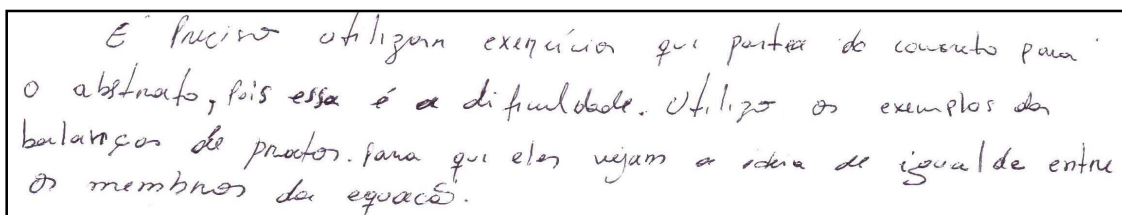 É Preciso utilizar exercícios que parta do concreto para
o abstrato, pois essa é a dificuldade. Utilizo os exemplos das
balanças de pratos. para que eles vejam a ideia de igualde entre
os membros da equacão.